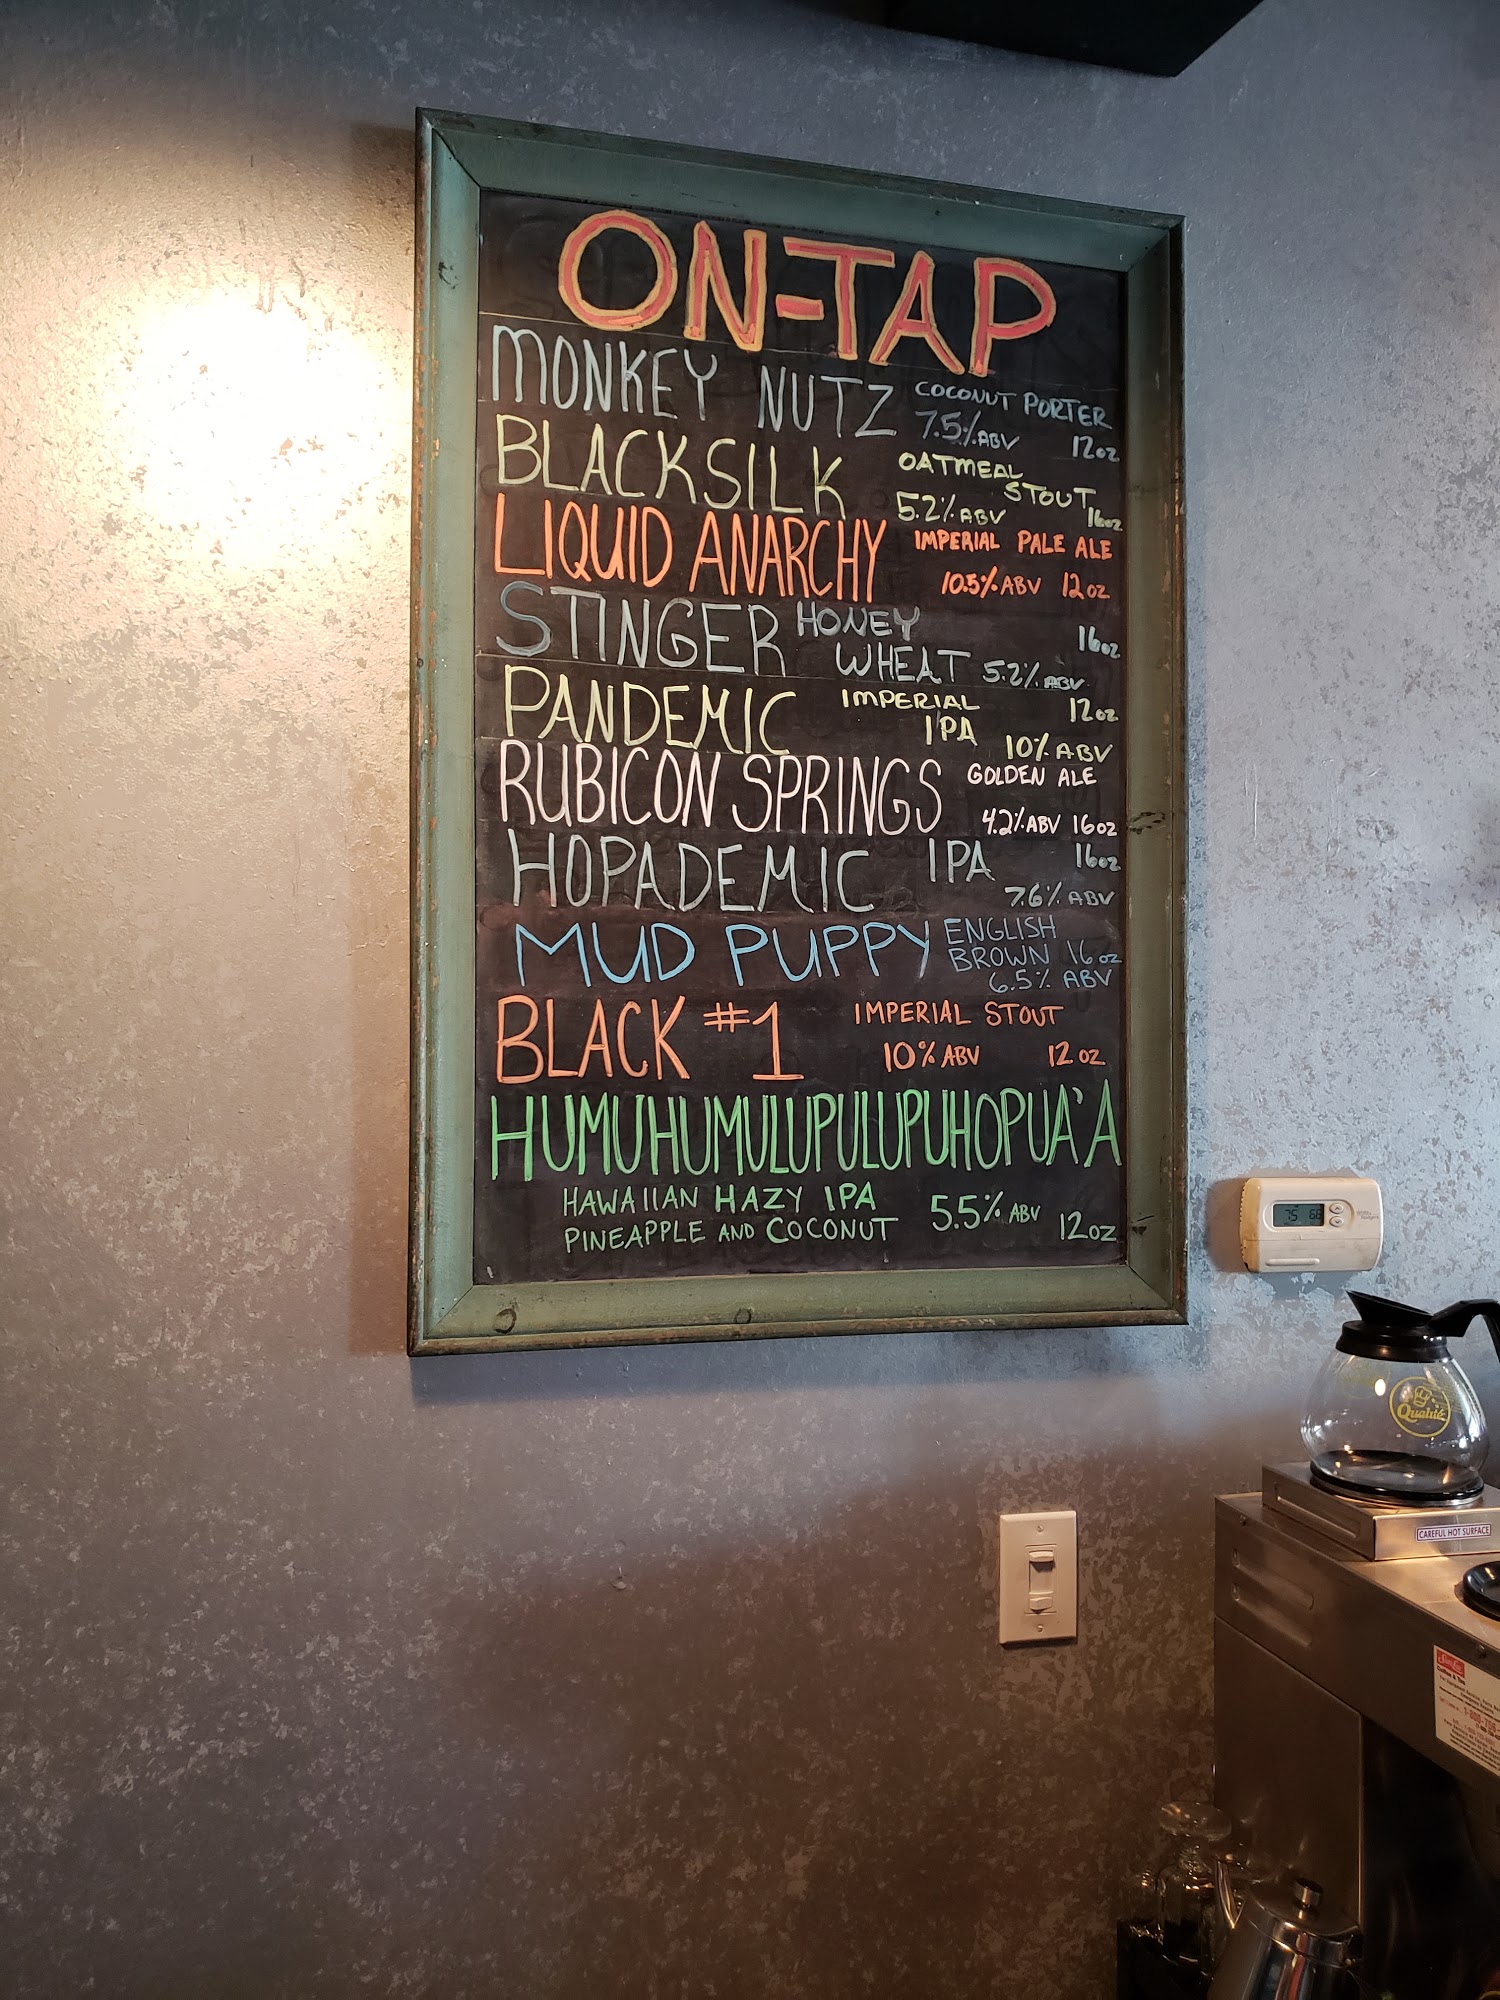 ON-TAP
MONKEY NUTZ COCONUT PORTER
7.5% ABV 12oz
BLACKSILK OATMEAL
STOUT
5.2% ABV 16oz
LIQUID ANARCHY IMPERIAL PALE ALE
10.5% ABV 12oz
STINGER HONEY 16oz
WHEAT 5.2% ABV
PANDEMIC IMPERIAL 12oz
IPA 10% ABV
RUBICON SPRINGS GOLDEN ALE
4.2% ABV 16oz
HOPADEMIC IPA 16oz
7.6% ABV
MUD PUPPY ENGLISH
BROWN 16oz
6.5% ABV
BLACK #1 IMPERIAL STOUT
10% ABV 12oz
HUMUHUMULUPULUPUHOPUA'A
HAWAIIAN HAZY IPA 5.5% ABV
PINEAPPLE AND COCONUT 12oz
75 68
CAREFUL HOT SURFACE
Coffee & Tea